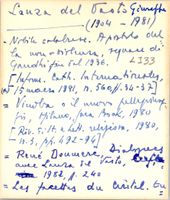 Lanza del Vasto Giuseppe
(1901 - 1981)
- Nobile calabrese. Apostolo del
la non-violenza, seguace di
Gandhi fin dal 1936. L533
[Inform. Cath. Internationales,
n° 15 mars 1981, n. 560, pp. 34-37]
= Vinoba o il nuovo pellegrinag-
gio, Milano, Jaca Book, 1980
[Riv. di St. e Lett. religiosa, 1980,
n. 3, pp. 492-94]
= René Doumerc, Dialogues
avec Lanza del Vasto,
1982, p. 240
= Les facettes du cristal.